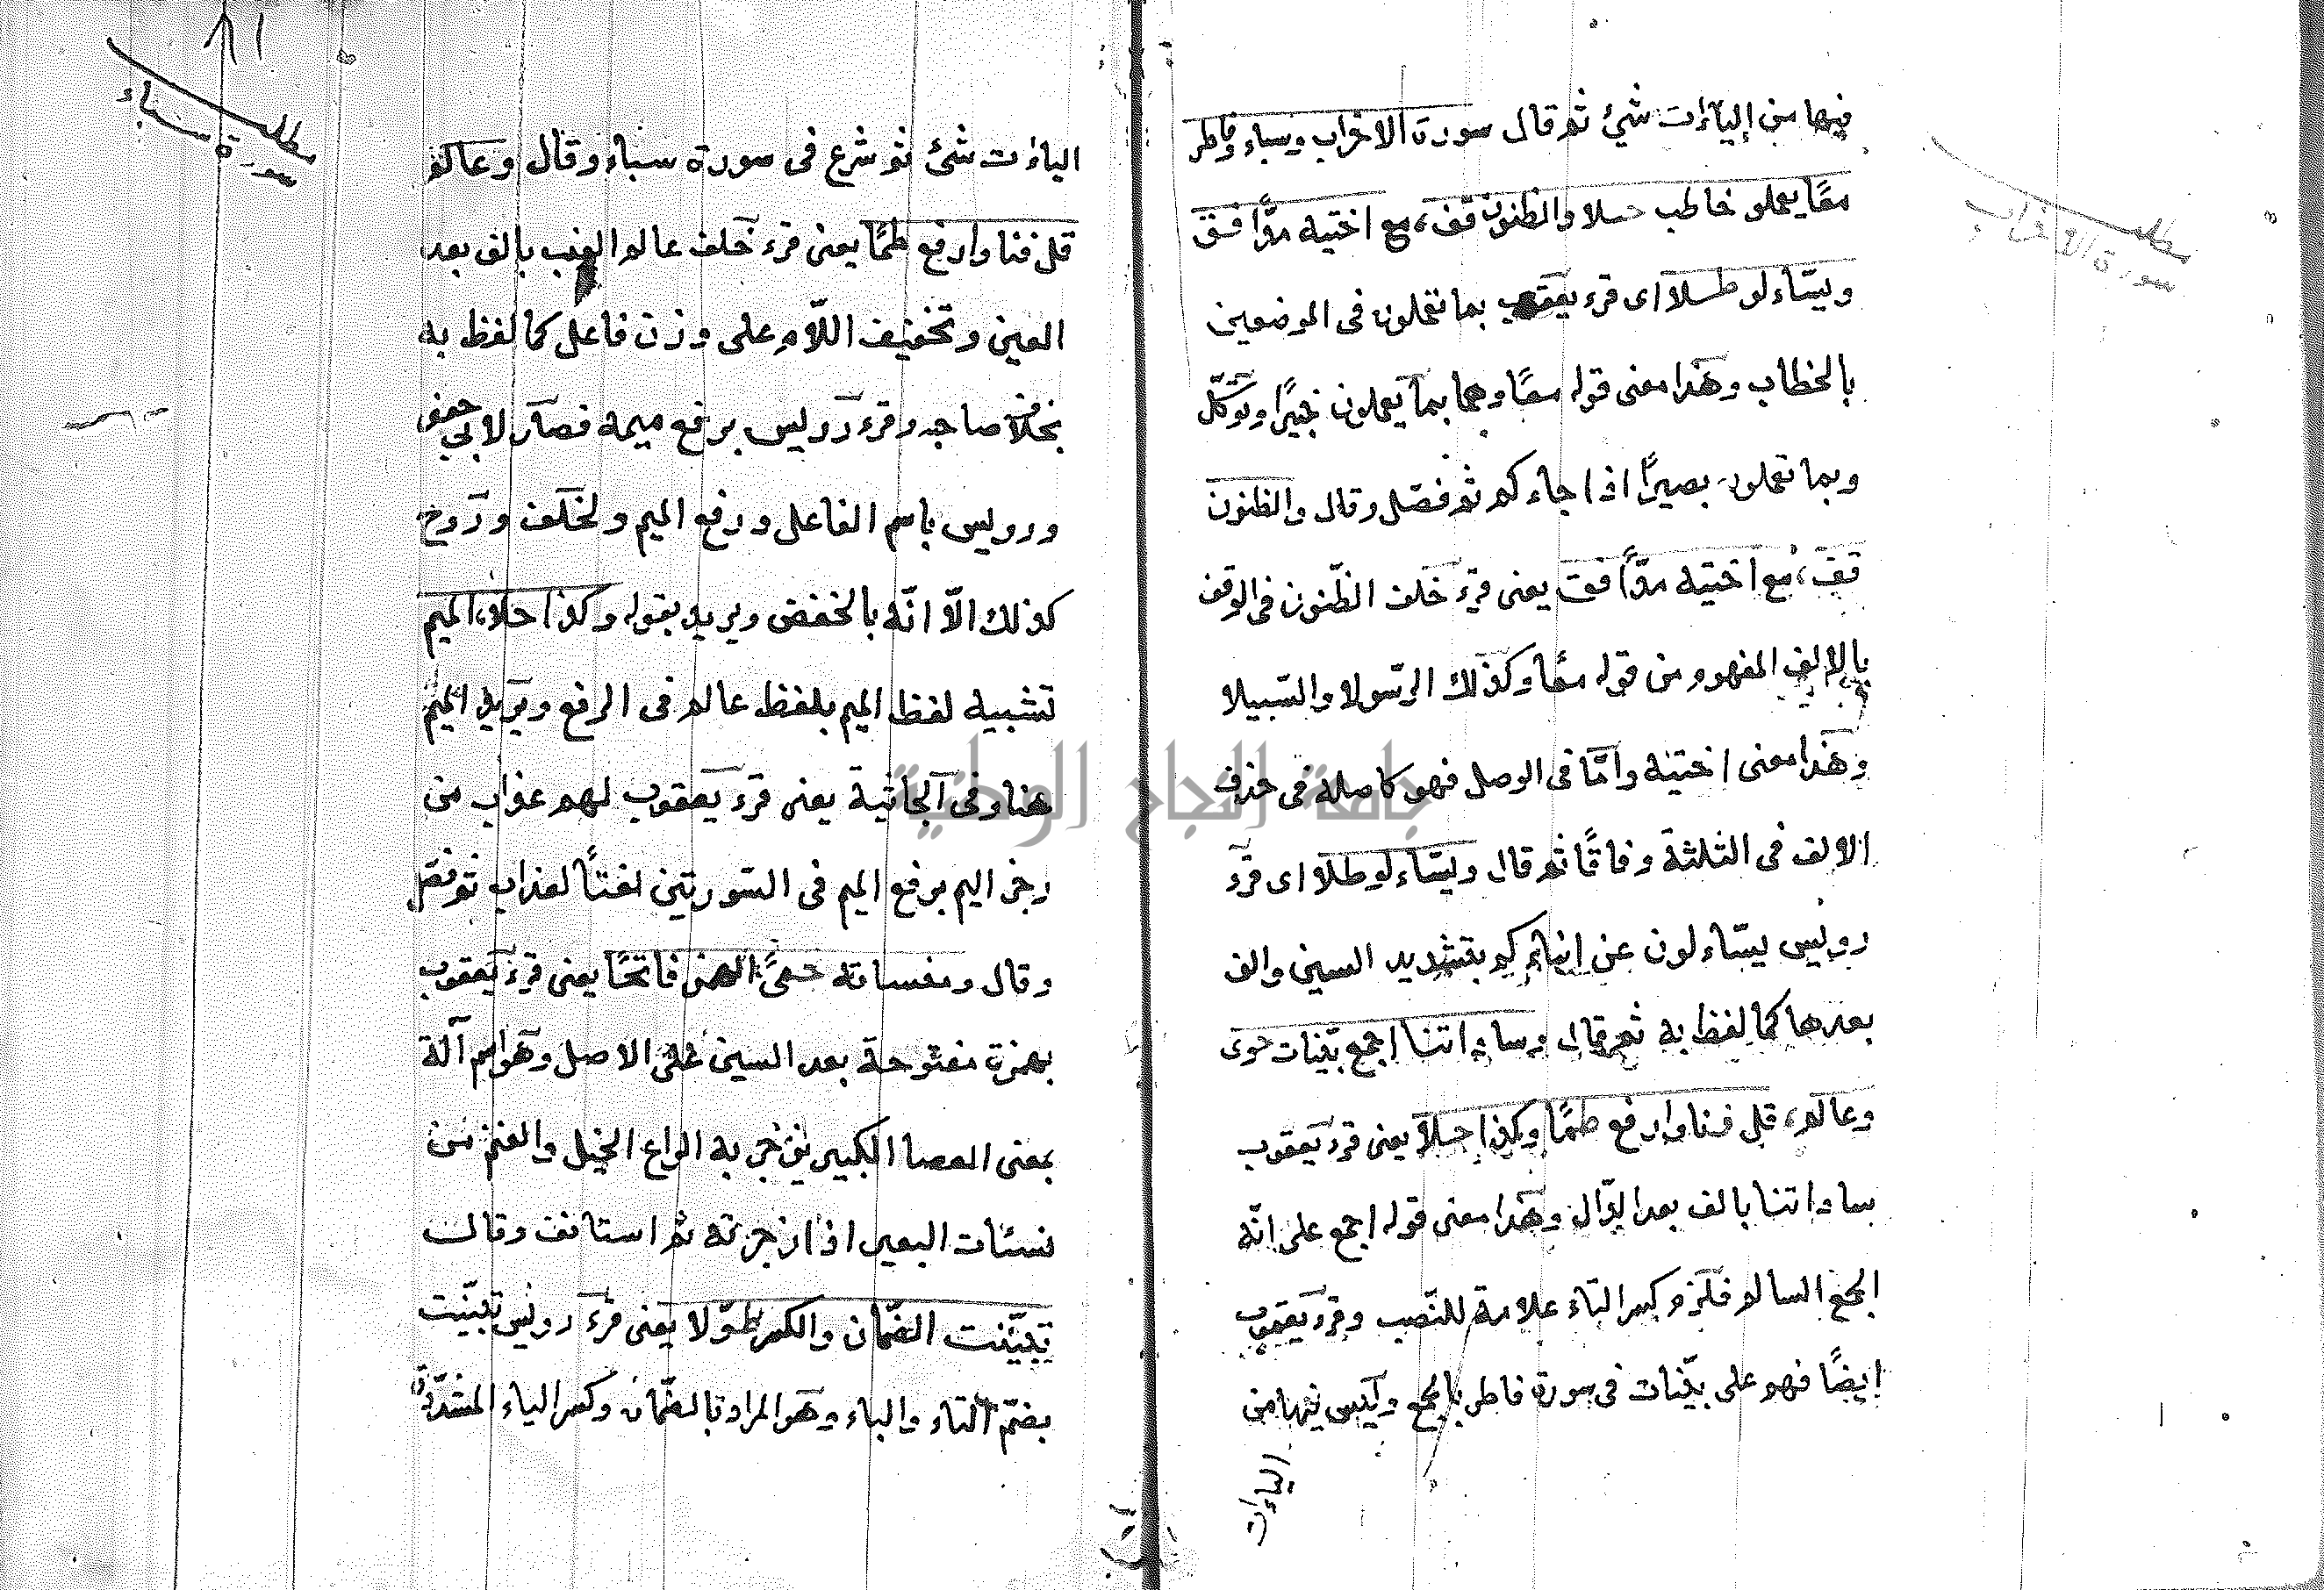 سورة الاحزاب
فيها من الياآت شئ ثم قال سورة الاحزاب وسباء وفاطر
معًا يعملو خاطب حلا والظنون قف، مع اختيه مدًّا فق
ويسّاءلو طلا اى قرء يعقوب بما تعملون فى الموضعين
بالخطاب وهذا معنى قوله معًا وهما بما يعملون خبيرًا وتوكّل
وبما تعملون بصيرًا اذا جاءكم ثم فصّل وقال والظنون
قف، مع اختيه مدًّا فق يعنى قرء خلف الظّنون فى الوقف
بالالف المفهوم من قوله معًا وكذلك الرّسولا والسّبيلا
وهذا معنى اختيه وامّا فى الوصل فهو كاصله فى حذف
الالف فى الثلثة وفاقًا ثم قال ويسّاءلو طلا اى قرء
رويس يسّاءلون عن انبائكم بتشديد السين والف
بعدها كما لفظ به ثم قال وساداتنا اجمع بيّنات حوى
وعالم، قل فنا وارفع طمًا وكذا حلا يعنى قرء يعقوب
ساداتنا بالف بعد الدّال وهذا معنى قوله اجمع على انّه
الجمع السالم فلزم كسر التاء علامة للنّصب وقرء يعقوب
ايضًا فهم على بيّنات فى سورة فاطر بالجمع وليس فيها من
الياءات
٨١
سورة سباء
الياءات شئ ثم شرع فى سورة سباء وقال وعالم
قل فنا وارفع طمًا يعنى قرء خلف عالم الغيب بالف بعد
العين وتخفيف اللّام على وزن فاعل كما لفظ به
بخلاف صاحبه وقرء رويس برفع ميمه فصار لابى جعفر
ورويس باسم الفاعل ورفع الميم ولخلف وروح
كذلك الّا انّه بالخفض ويريد بقوله وكذا حلا، الميم
تشبيه لفظ اليم بلفظ عالم فى الرفع ويريد الميم
هنا وفى الجاثية يعنى قرء يعقوب لهم عذاب من
رجز اليم برفع الميم فى السّورتين نعتًا لعذاب ثم فصّل
وقال ومنسأته حمىً الهمز فاتحًا يعنى قرء يعقوب
بهمزة مفتوحة بعد السين على الاصل وهو اسم آلة
بمعنى العصا الكبير يزجر به الراع الخيل والغنم من
نسئات البعير اذا زجرته ثم استانف وقال
تبيّنت الضّمان والكسر طوّلا يعنى قرء رويس تبيّنت
بضمّ التاء والباء وهو المراد بالضّمان وكسر الياء المشدّدة